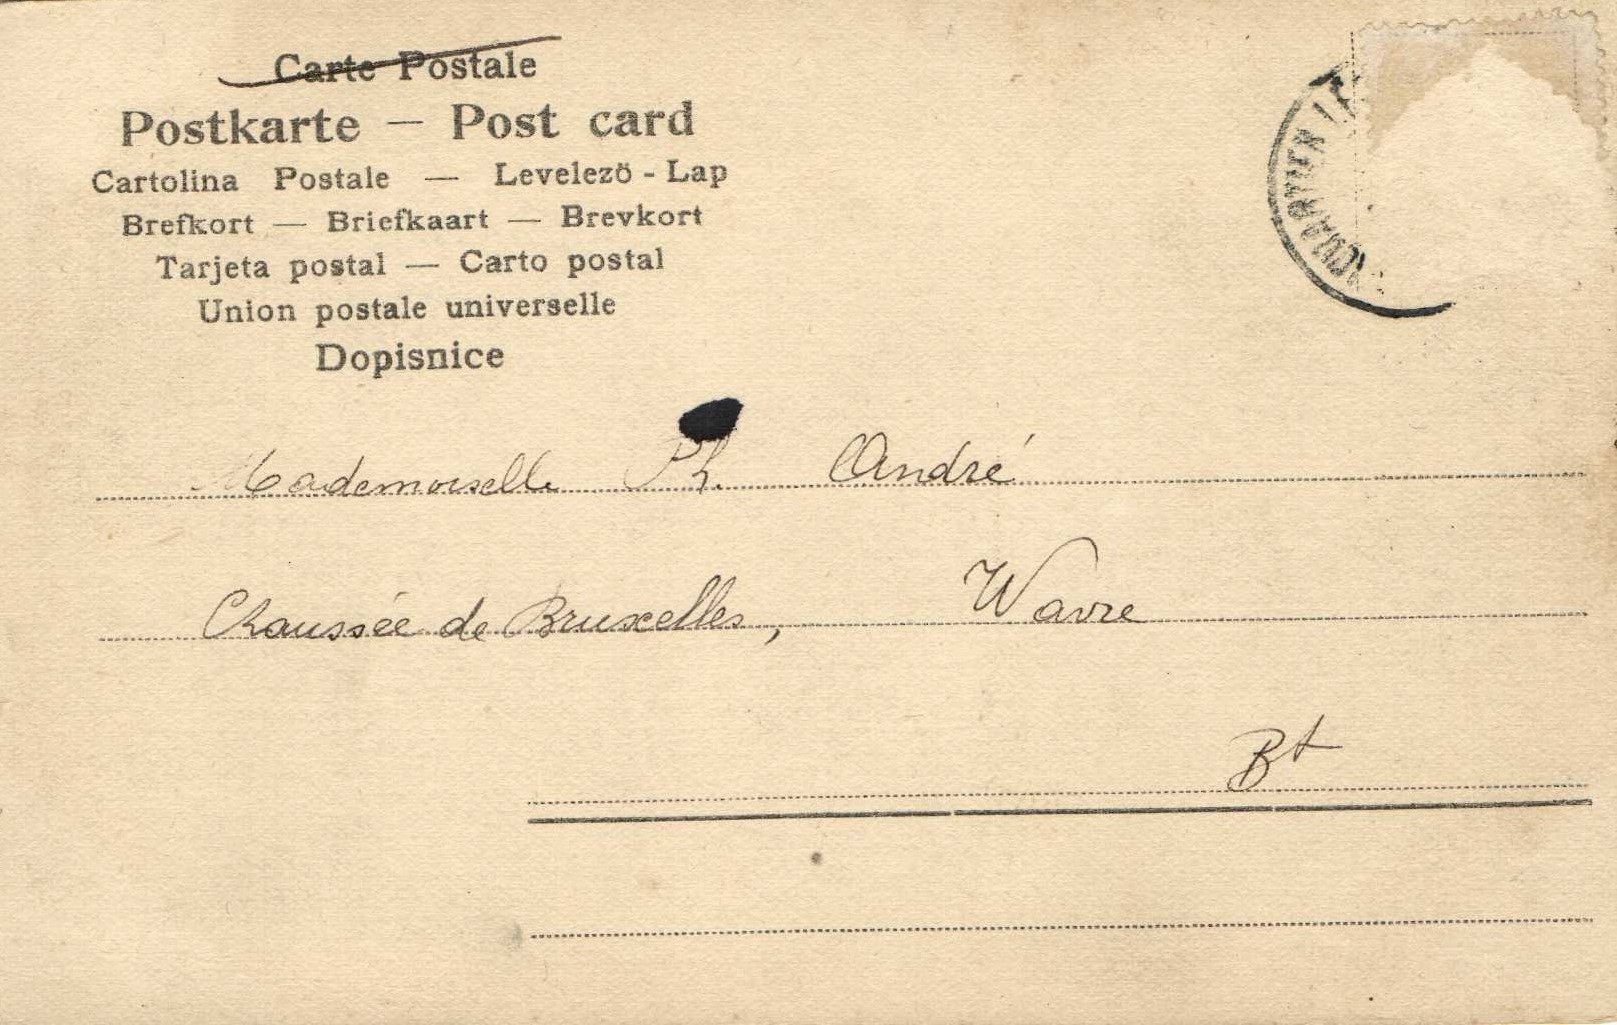 Carte Postale
Postkarte — Post card
Cartolina Postale — Levelezö - Lap
Brefkort — Briefkaart — Brevkort
Tarjeta postal — Carto postal
Union postale universelle
Dopisnice
Mademoiselle Ph. André
Chaussée de Bruxelles, Wavre
Bt